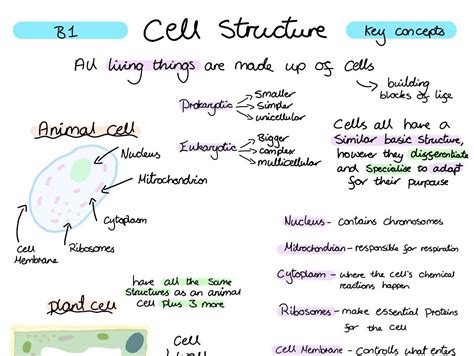 B1
Cell Structure
Key concepts
All living things are made up of cells
building
blocks of life
Prokaryotic
Smaller
Simpler
unicellular
Eukaryotic
Bigger
complex
multicellular
Cells all have a
Similar basic structure,
however they differentiate
and Specialise to adapt
for their purpose
Animal cell
Nucleus
Mitochondrion
Cytoplasm
Ribosomes
Cell
Membrane
Nucleus - contains chromosomes
Mitochondrion - responsible for respiration
Cytoplasm - where the cell's chemical
reactions happen
Ribosomes - make essential Proteins
for the cell
Cell Membrane - Controlls what enters
Plant cell
have all the Same
Structures as an animal
cell Plus 3 more
Cell